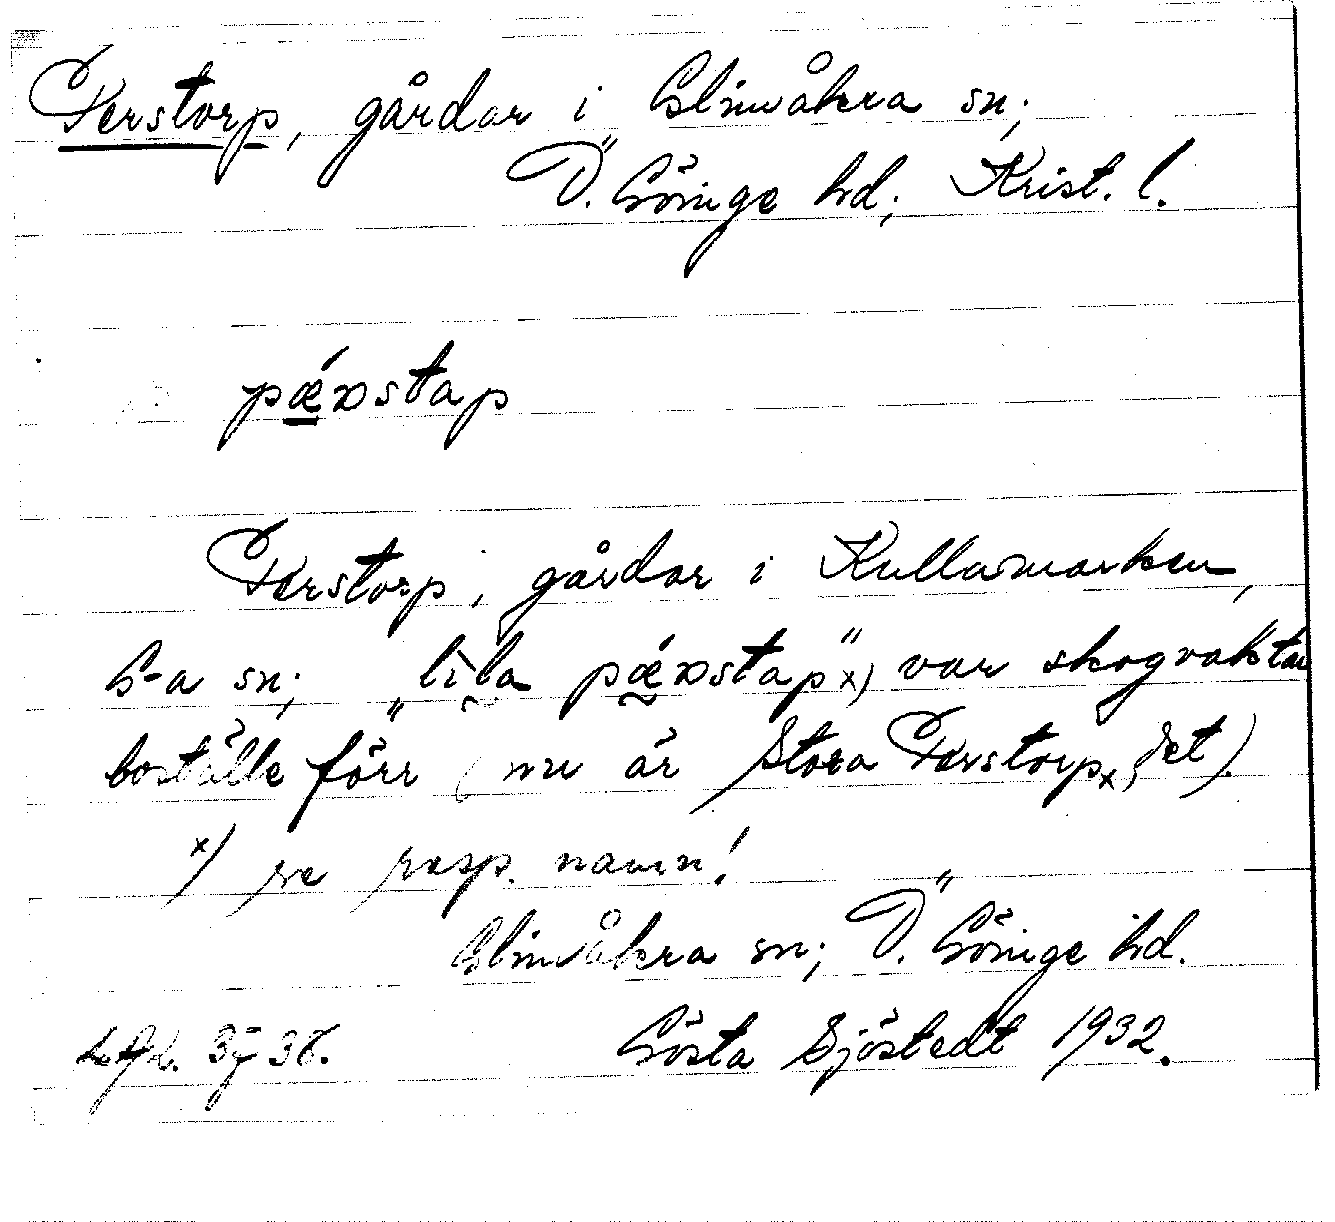 Perstorp, gårdar i Glimåkra sn;
Ö. Göinge hd; Krist. l.
pǽꭆstap
Perstorp, gårdar i Kullamarken,
G-a sn; „lìla pǽꭆstap" x) var skogvaktar
boställe förr (nu är Stora Perstorp x) det).
x) se resp. namn!
Glimåkra sn; Ö. Göinge hd.
Gösta Sjöstedt 1932.